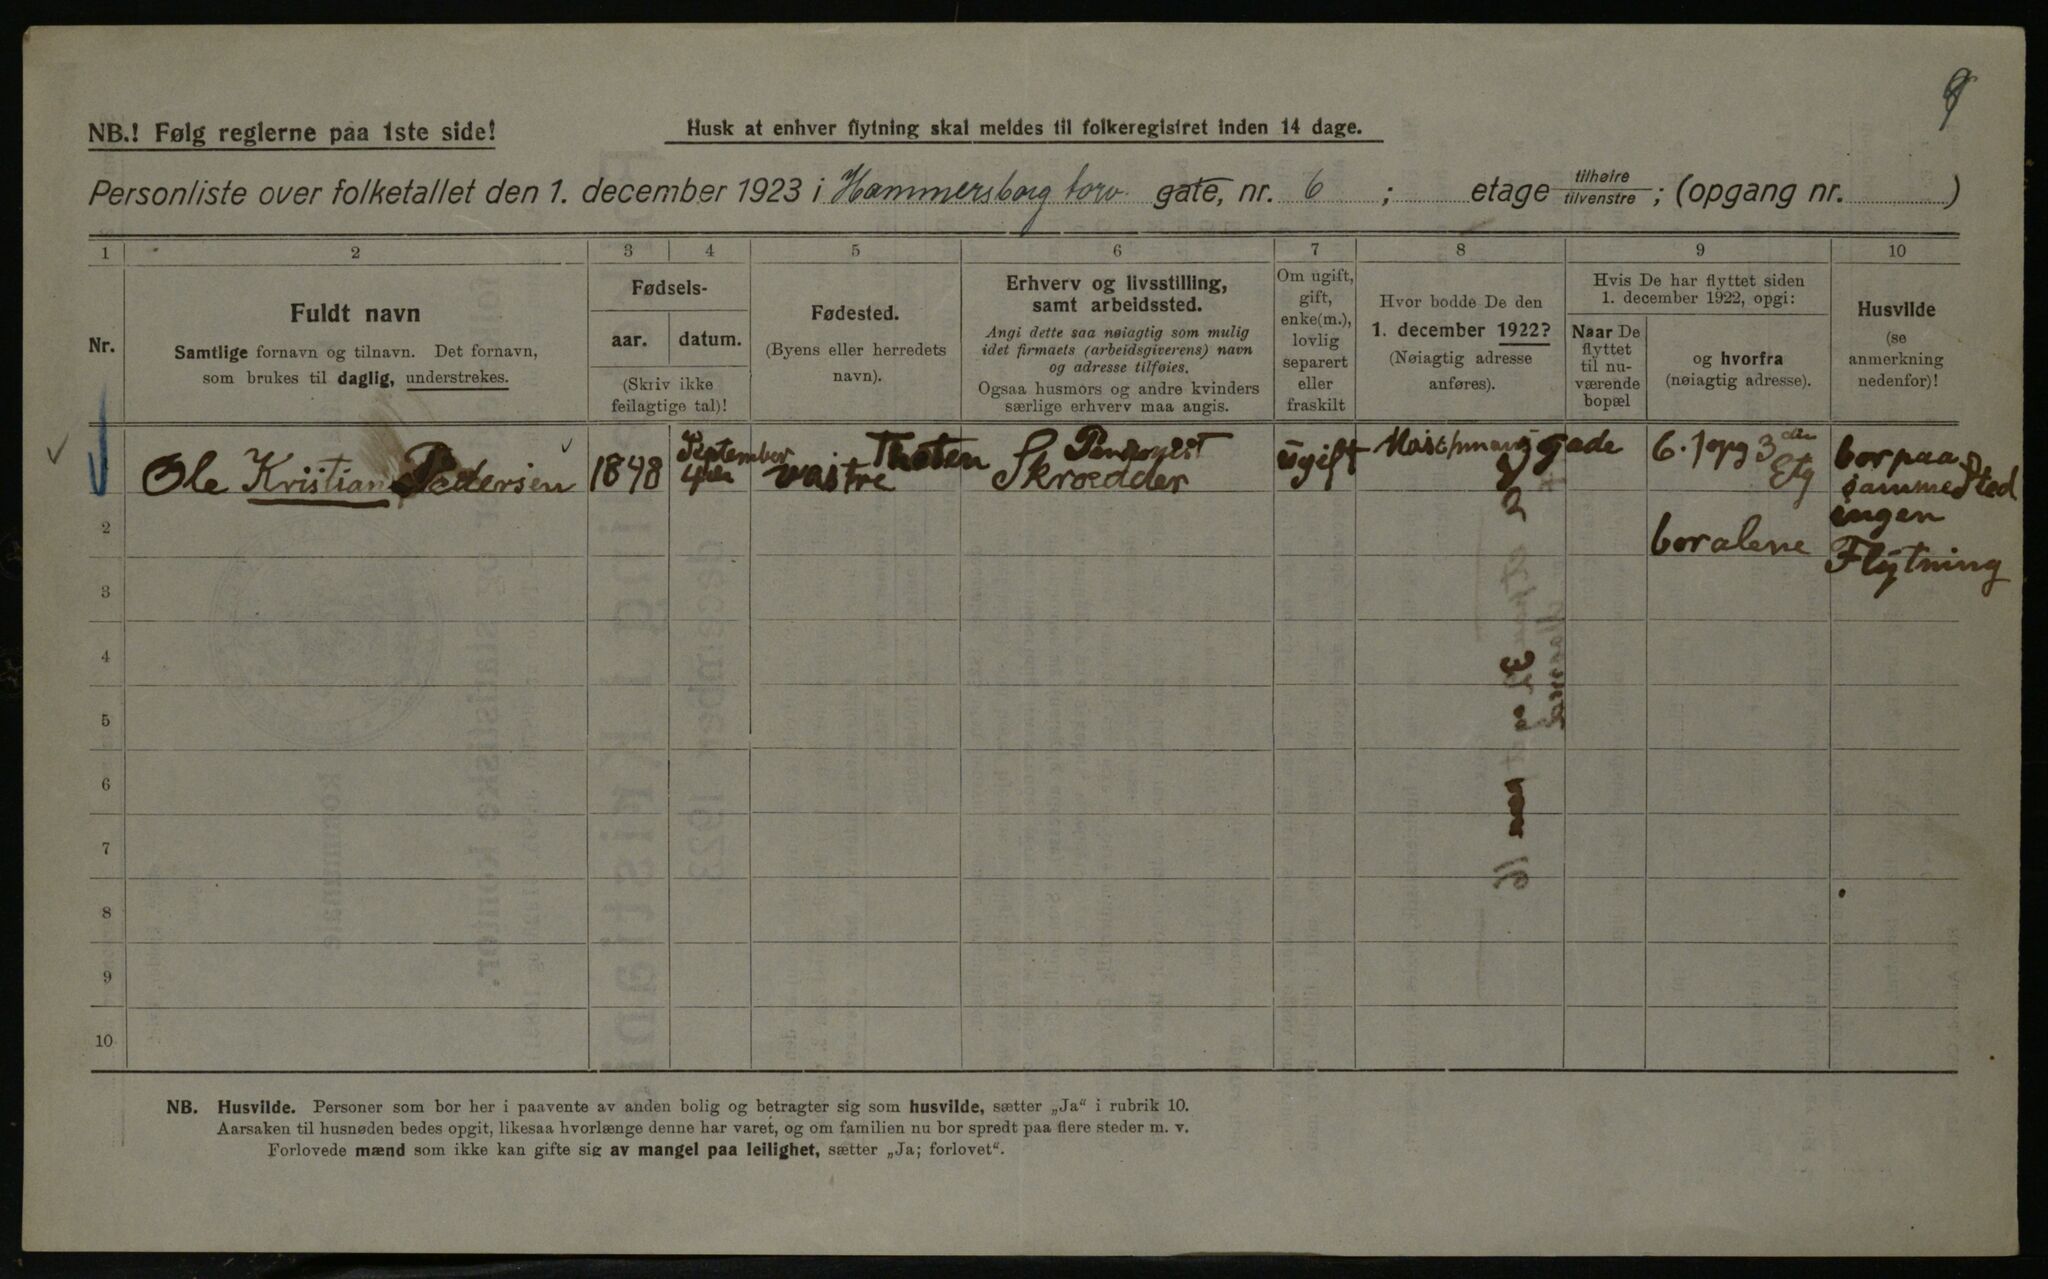 9
NB.! Følg reglerne paa 1ste side!
Husk at enhver flytning skal meldes til folkeregistret inden 14 dage.
Personliste over folketallet den 1. december 1923 i Hammersborg torv gate, nr. 6 ; etage tilhøire tilvenstre ; (opgang nr. )
1 2 3 4 5 6 7 8 9 10
Nr.
Fuldt navn
Samtlige fornavn og tilnavn. Det fornavn,
som brukes til daglig, understrekes.
Fødsels-
aar. datum.
(Skriv ikke
feilagtige tal)!
Fødested.
(Byens eller herredets
navn).
Erhverv og livsstilling,
samt arbeidssted.
Angi dette saa nøiagtig som mulig
idet firmaets (arbeidsgiverens) navn
og adresse tilføies.
Ogsaa husmors og andre kvinders
særlige erhverv maa angis.
Om ugift,
gift,
enke(m.),
lovlig
separert
eller
fraskilt
Hvor bodde De den
1. december 1922?
(Nøiagtig adresse
anføres).
Hvis De har flyttet siden
1. december 1922, opgi:
Naar De
flyttet
til nu-
værende
bopæl
og hvorfra
(nøiagtig adresse).
Husvilde
(se
anmerkning
nedenfor)!
Ole Kristian Pedersen
1848
September
4de
Thoten
vastre
Skrædder
ugift
gade
6. 1 opg 3die
Etg
bor alene
bor paa
samme Sted
ingen
Flytning
2
3
4
5
6
7
8
9
10
NB. Husvilde. Personer som bor her i paavente av anden bolig og betragter sig som husvilde, sætter „Ja“ i rubrik 10.
Aarsaken til husnøden bedes opgit, likesaa hvorlænge denne har varet, og om familien nu bor spredt paa flere steder m. v.
Forlovede mænd som ikke kan gifte sig av mangel paa leilighet, sætter „Ja; forlovet“.